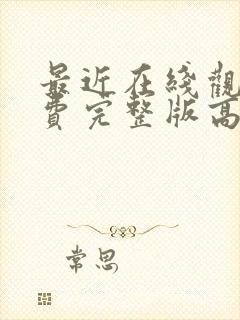 最近在綫觀
費完整版高
常思